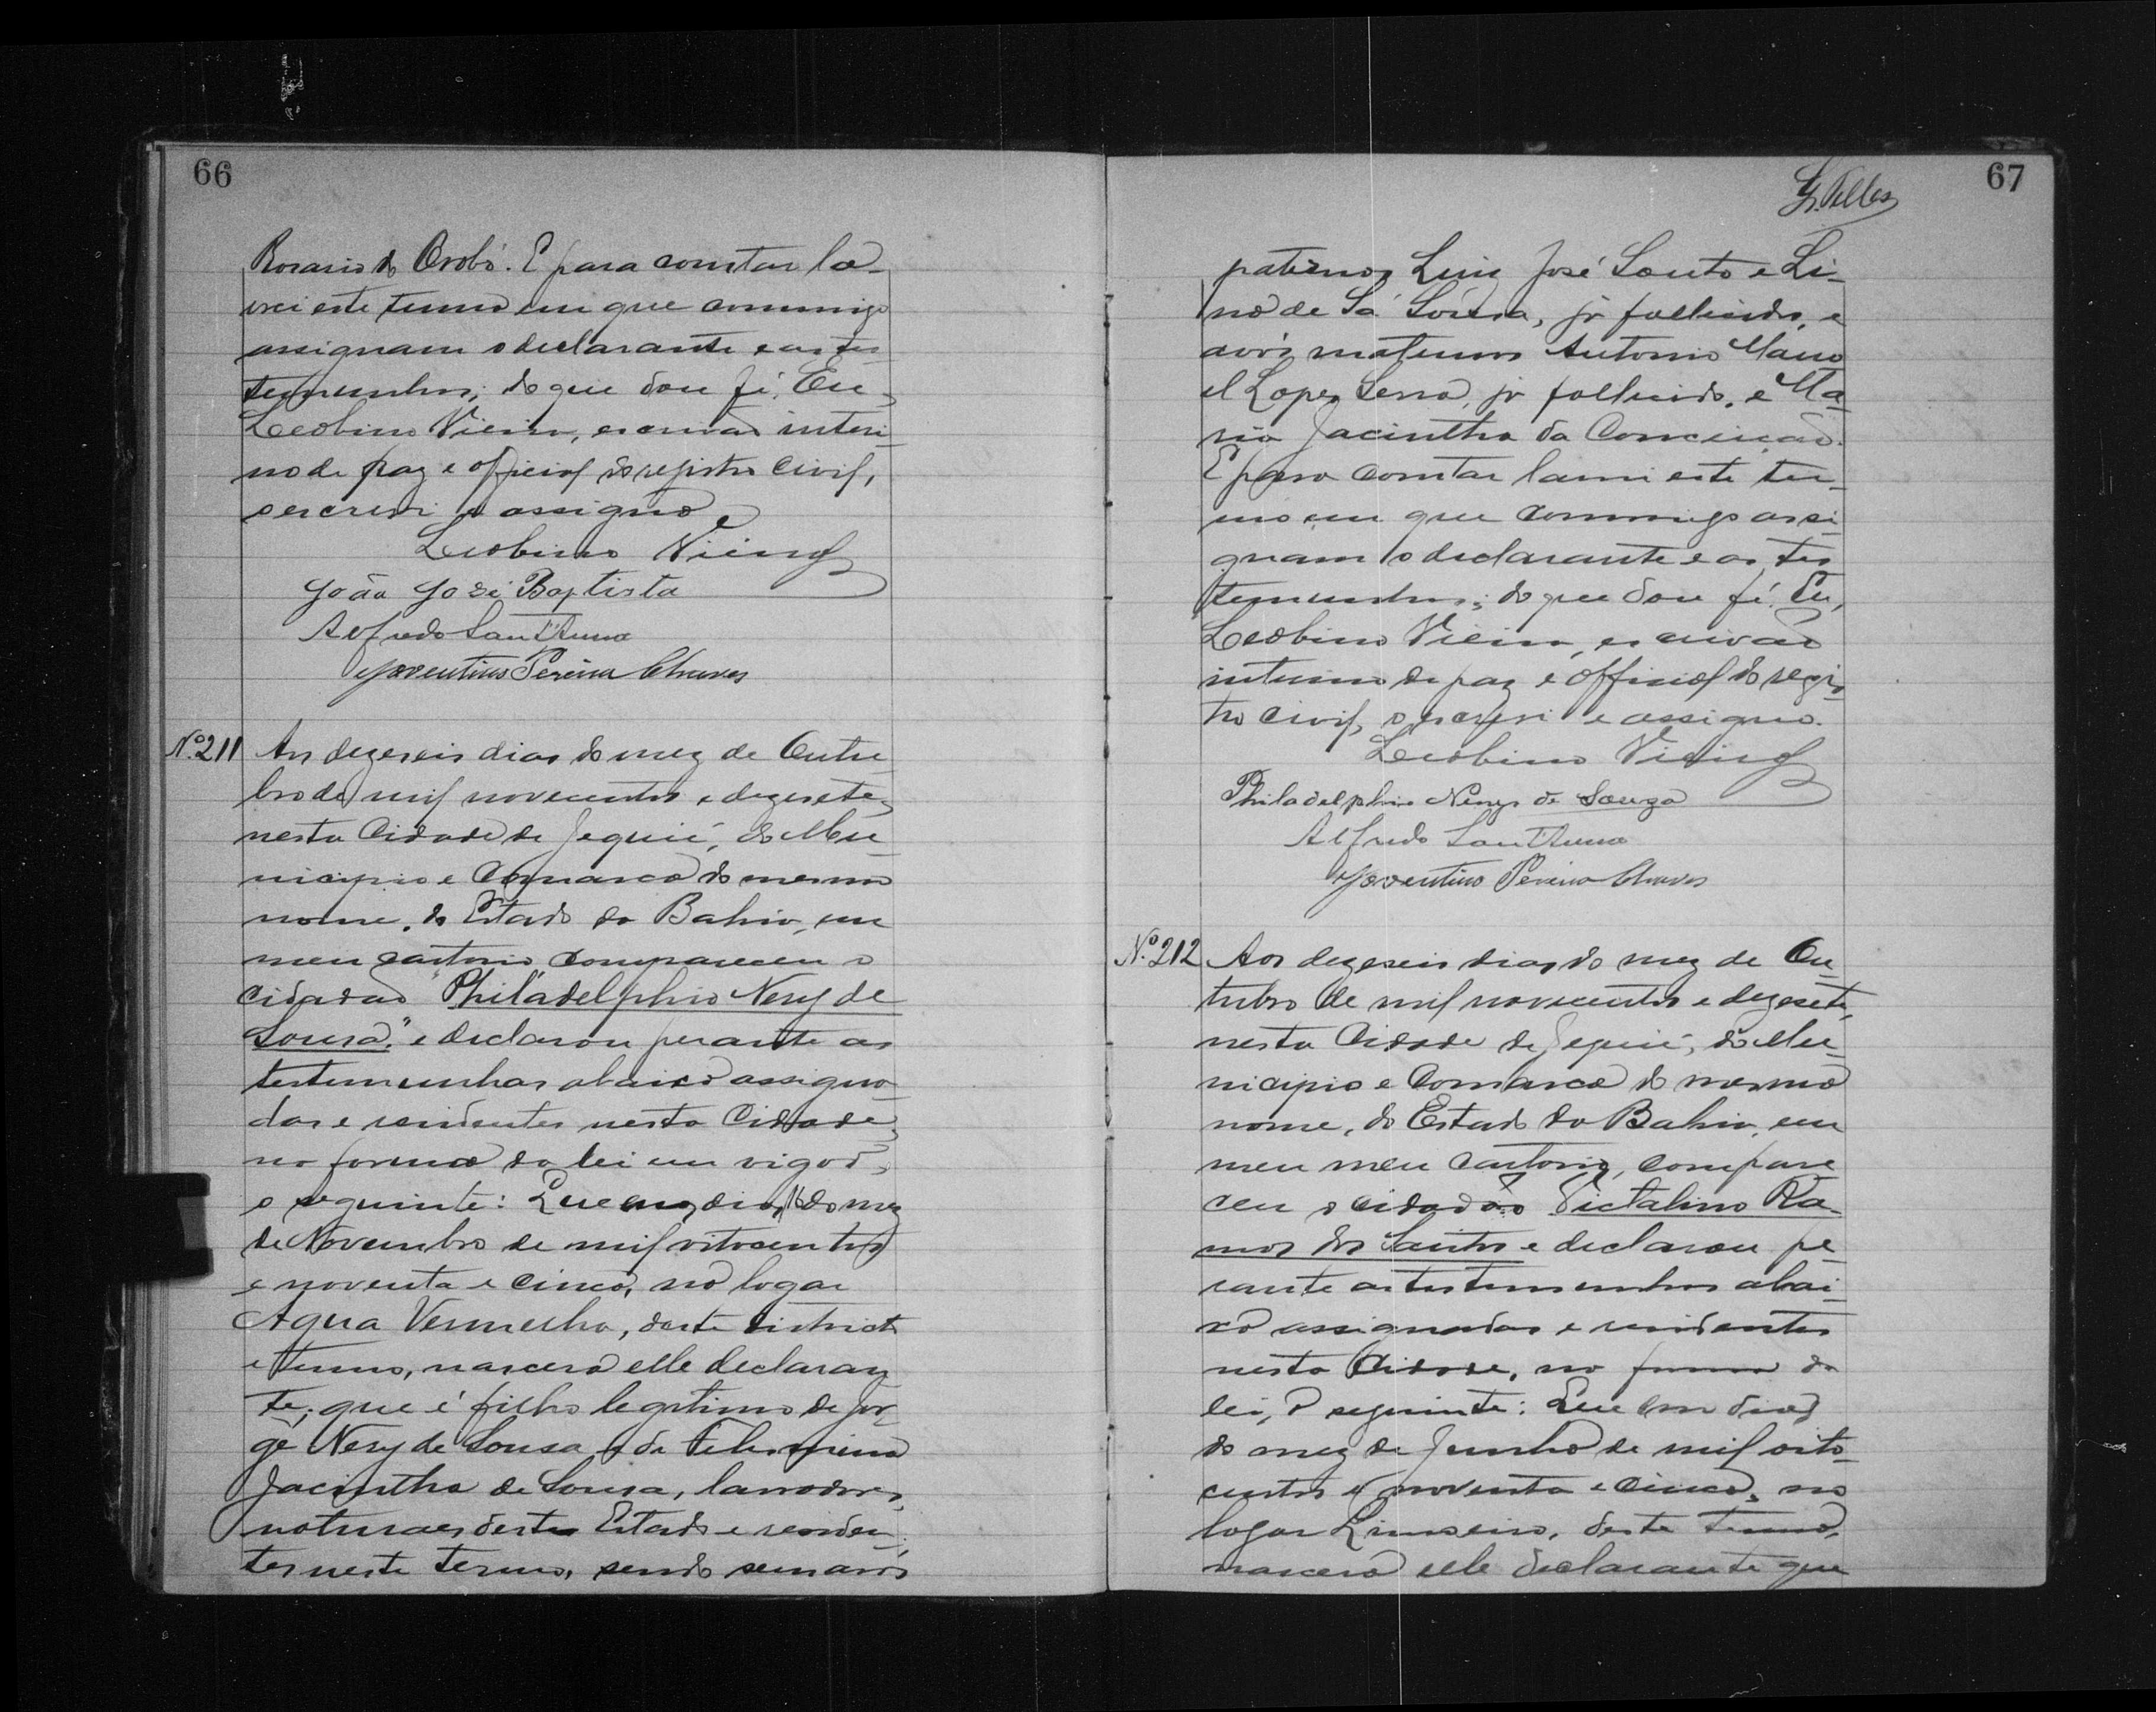 66
Rosario do Orobó. E para constar la-
vrei este termo em que commigo
assignam o declarante e as tes
temunhas; do que dou fé. Eu,
Leobino Vieira, escrivão interi-
no de paz e official do registro civil,
o escrevi e assigno
Leobino Vieira
João José Baptista
Alfredo Sant'Anna
Joventino Pereira Chaves
Nº 211 Aos dezeseis dias do mez de Outu-
bro de mil novecentos e dezesete,
nesta Cidade de Jequié, do Mu-
nicipio e Comarca do mesmo
nome, do Estado da Bahia, em
meu cartorio compareceu o
cidadão "Philadelphio Nery de
Sousa," e declarou perante as
testemunhas abaixo assigna-
das e residentes nesta Cidade,
na forma da lei em vigor,
o seguinte: Que no dia 16 do mez
de Novembro de mil oitocentos
e noventa e cinco, no logar
Agua Vermelha, deste districto
e termo, nascera elle declaran
te; que é filho legitimo de Jor-
ge Nery de Sousa e de
Jacintha de Sousa, lavradores,
naturaes deste Estado e residen-
tes neste termo, sendo seus avós
67
G. Telles
paternos Luiz José Souto e Li-
na de Sá Sousa, já fallecidos, e
avós maternos Antonio Mano
el Lopes Serra, já fallecido, e Ma-
ria Jacintha da Conceição.
E para constar lavrei este ter-
mo em que commigo assi-
gnam o declarante e as tes
temunhas; do que dou fé. Eu,
Leobino Vieira, escrivão
interino de paz e official do regis-
tro civil, o escrevi e assigno.
Leobino Vieira
Philadelphio Nery de Souza
Alfredo Sant'Anna
Joventino Pereira Chaves
Nº 212 Aos dezeseis dias do mez de Ou-
tubro de mil novecentos e dezesete,
nesta Cidade de Jequié, do Mu-
nicipio e Comarca do mesmo
nome, do Estado da Bahia, em
meu meu cartorio, compare
ceu o cidadão Victalino Ra-
mos dos Santos e declarou pe
rante as testemunhas abai-
xo assignadas e residentes
nesta Cidade, na forma da
lei, o seguinte: Que em dias
do mez de Junho de mil oito-
centos e noventa e cinco, no
logar Limoeiro, deste termo,
nascera elle declarante que